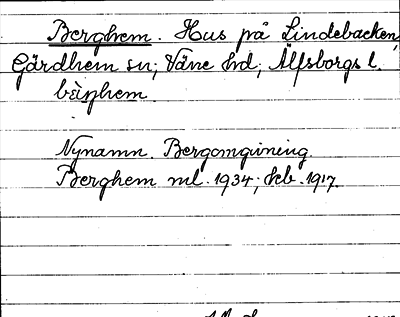 Berghem. Hus på Lindebacken,
Gärdhem sn; Väne hd; Älfsborgs l.
Nynamn. Bergomgivning.
Berghem ml. 1934; Feb. 1917.